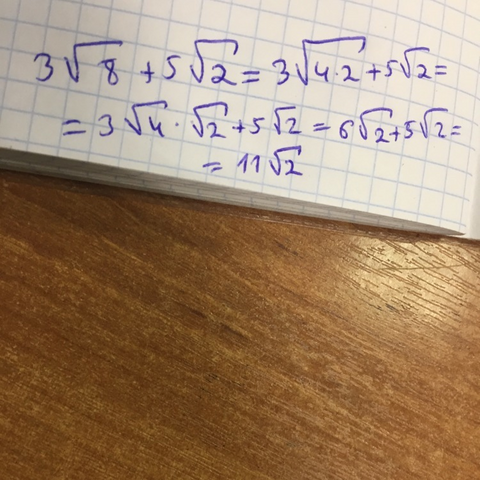 3√8 + 5√2 = 3√4·2 + 5√2 =
= 3√4 · √2 + 5√2 = 6√2 + 5√2 =
= 11√2